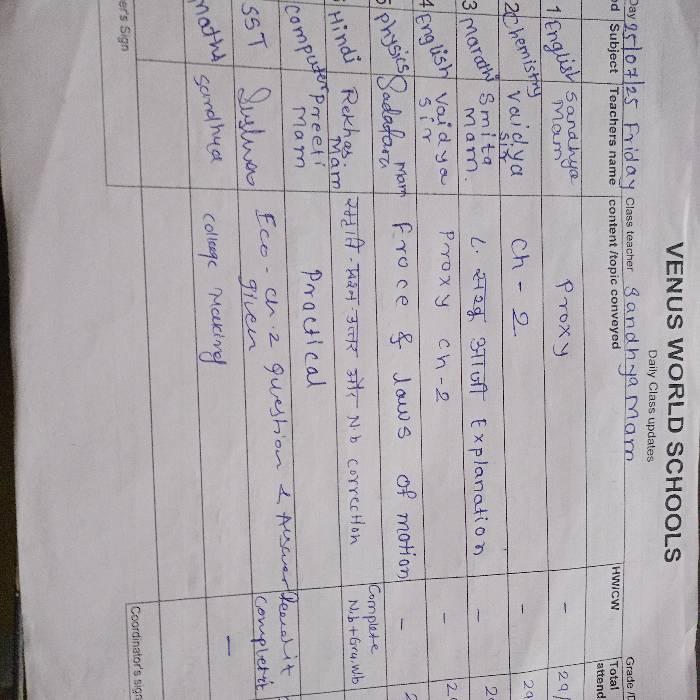 VENUS WORLD SCHOOLS
Daily Class updates
Day 25/07/25 Friday Class teacher Sandhya Mam Grade
Subject Teachers name content /topic conveyed HW/CW Total attend
1 English Sandhya Mam Proxy - 29/
2 Chemistry Vaidya Sir Ch - 2 - 29
3 Marathi Smita Mam. Explanation - 2
4 English Vaidya Sir Proxy ch-2 - 2
5 physics Mam Froce & laws of motion - 2
Hindi Rekha. Mam N.b correction Complete N.b + Gra. Wb
Computer Preeti Mam Practical
SST Sushma Eco - ch. 2 Question & Answer given complete it
Maths Sandhya college Making -
er's Sign Coordinator's sign